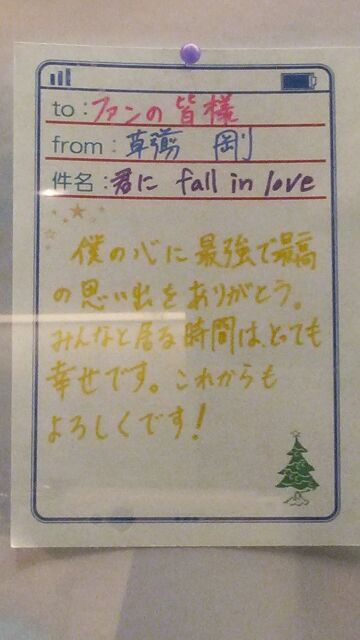 to：ファンの皆様
from：草彅 剛
件名：君に fall in love
僕の心に最強で最高
の思い出をありがとう。
みんなと居る時間は、とっても
幸せです。これからも
よろしくです！